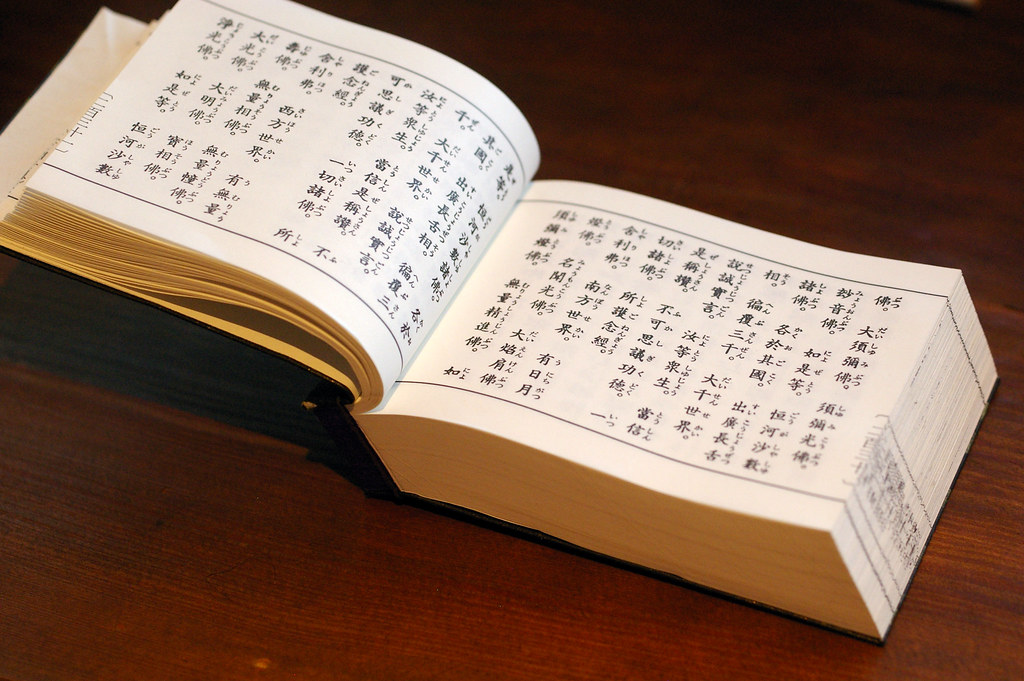 佛。 大須彌佛。 須彌光佛。
妙音佛。 如是等。 恒河沙數
諸佛。 各於其國。 出廣長舌
相。 徧覆三千 大千世界。
說誠實言。 汝等衆生。 當信
是稱讚 不可思議功德。 一
切諸佛。 所護念經。
舍利弗。 南方世界。 有日月
燈佛。 名聞光佛。 大焔肩佛。
須彌燈佛。 無量精進佛。 如
〔二百三十〕
是等。 恒河沙數諸佛。 各於
其國。 出廣長舌相。 徧覆三
千 大千世界。 說誠實言。
汝等衆生。 當信是稱讚。 不
可思議功德。 一切諸佛。 所
護念經。
舍利弗。 西方世界。 有無量
壽佛。 無量相佛。 無量幢佛。
大光佛。 大明佛。 寶相佛。
淨光佛。 如是等。 恒河沙數
〔二百三十一〕